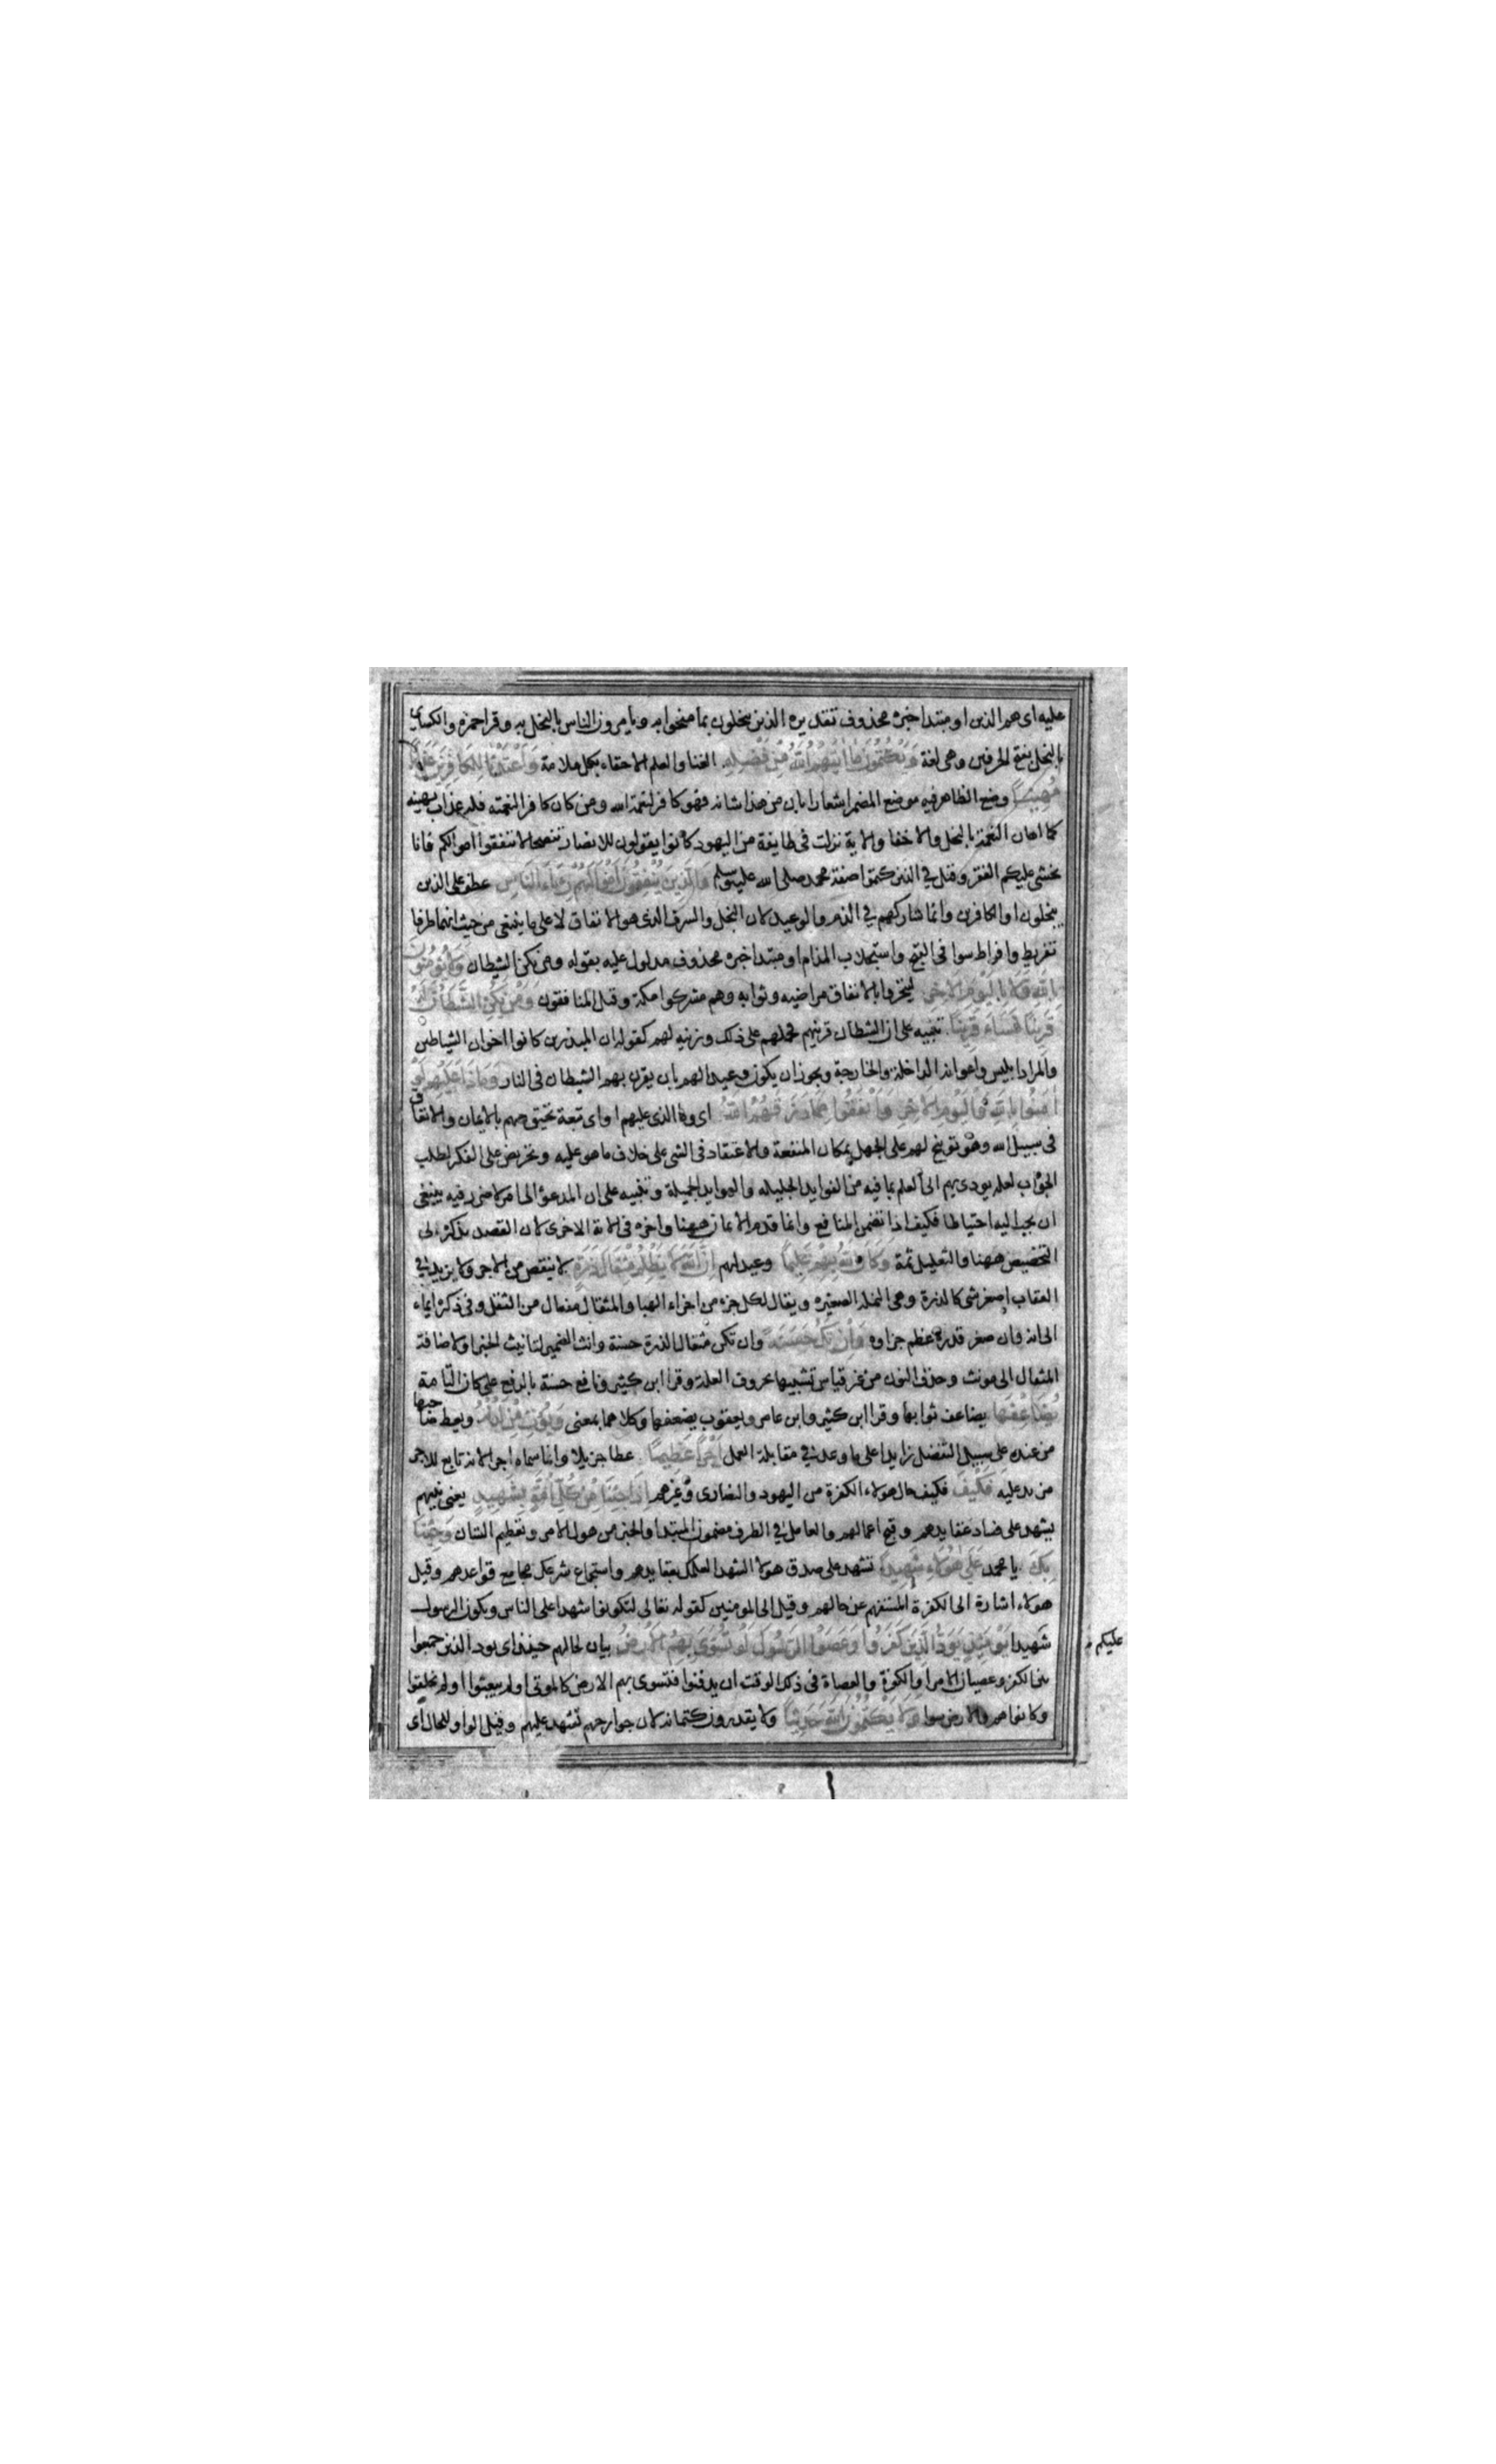 عليه اى هم الذين او مبتدا خبره محذوف تقديره الذين يبخلون بما منحوا به ويامرون الناس بالبخل به وقرا حمزه والكسائ
بالبخل بفتح الحرفين وهى لغة وَيَكْتُمُونَ مَا اٰتٰيهُمُ اللّٰهُ مِنْ فَضْلِهِ الغنا والعلم الاحقاء بكل ملامة وَاَعْتَدْنَا لِلْكَافِرِينَ عَذَابًا
مُهِينًا وضع الظاهر فيه موضع المضمر اشعارا بان من هذا شانه فهو كافر لنعمة الله ومن كان كافر النعمته فله عذاب يهينه
كما اهان النعمة بالبخل والاخفا والاية نزلت فى طايفة من اليهود كانوا يقولون للانصار تنصحا لا تنفقوا اموالكم فانا
نخشى عليكم الفقر وقيل فى الذين كتموا صفة محمد صلى الله عليه وسلم وَالَّذِينَ يُنْفِقُونَ اَمْوَالَهُمْ رِئَاءَ النَّاسِ عطف على الذين
يبخلون او الكافرين وانما شاركهم فى الذم والوعيد لان البخل والسرف الذى هو الانفاق لا على ما ينبغى من حيث انهما طرفا
تفريط وافراط سوا فى القبح واستجلاب المذام او مبتدا خبره محذوف مدلول عليه بقوله ومن يكن الشيطان وَلَا يُؤْمِنُونَ
بِاللّٰهِ وَلَا بِالْيَوْمِ الْاٰخِرِ ليتحروا بالانفاق مراضيه وثوابه وهم مشركوا مكة وقيل المنافقون وَمَنْ يَكُنِ الشَّيْطَانُ لَهُ
قَرِينًا فَسَاءَ قَرِينًا تنبيه على ان الشيطان قرينهم فحملهم على ذلك وزينه لهم كقوله ان المبذرين كانوا اخوان الشياطين
والمراد ابليس واعوانه الداخلة والخارجة ويجوز ان يكون وعيدا لهم بان يقرن بهم الشيطان فى النار وَمَاذَا عَلَيْهِمْ لَوْ
اٰمَنُوا بِاللّٰهِ وَالْيَوْمِ الْاٰخِرِ وَاَنْفَقُوا مِمَّا رَزَقَهُمُ اللّٰهُ اى وما الذى عليهم او اى تبعة تحيق بهم بالايمان والانفاق
فى سبيل الله وهو توبيخ لهم على الجهل بمكان المنفعة والاعتقاد فى الشى على خلاف ما هو عليه وتحريض على الفكر لطلب
الجواب لعله يودى بهم الى العلم بما فيه من الفوايد الجليله والعوايد الجميلة وتنبيه على ان المدعو الى امر لا ضرر فيه ينبغى
ان يجيب اليه احتياطا فكيف اذا تضمن المنافع وانما قدم الايمان ههنا واخره فى الاية الاخرى لان القصد بذكره الى
التخصيص ههنا والتعليل ثمة وَكَانَ اللّٰهُ بِهِمْ عَلِيمًا وعيد لهم اِنَّ اللّٰهَ لَا يَظْلِمُ مِثْقَالَ ذَرَّةٍ لا ينقص من الاجر ولا يزيد فى
العقاب اصغر شى كالذرة وهى النملة الصغيره ويقال لكل جزء من اجزاء الهبا والمثقال مفعال من الثقل وفى ذكره ايماء
الى انه وان صغر قدره عظم جزاوه وَاِنْ تَكُ حَسَنَةً وان تكن مثقال الذرة حسنة وانث الضمير لتانيث الخبر او لاضافة
المثقال الى مونث وحذف النون من غير قياس تشبيها بحروف العلة وقرا ابن كثير ونافع حسنة بالرفع على كان التامة
يُضَاعِفْهَا يضاعف ثوابها وقرا ابن كثير وابن عامر ويعقوب يضعفها وكلاهما بمعنى وَيُؤْتِ مِنْ لَدُنْهُ ويعط صاحبها
من عنده على سبيل التفضل زايدا على ما وعد فى مقابلة العمل اَجْرًا عَظِيمًا عطا جزيلا وانما سماه اجرا لانه تابع للاجر
مزيد عليه فَكَيْفَ فكيف حال هولاء الكفرة من اليهود والنصارى وغيرهم اِذَا جِئْنَا مِنْ كُلِّ اُمَّةٍ بِشَهِيدٍ يعنى نبيهم
يشهد على فساد عقايدهم وقبح اعمالهم والعامل فى الظرف مضمون المبتدا والخبر من هول الامر وتعظيم الشان وَجِئْنَا
بِكَ يا محمد عَلٰى هٰؤُلَاءِ شَهِيدًا تشهد على صدق هولا الشهدا لعلمك بعقايدهم واستجماع شرعك مجامع قواعدهم وقيل
هولاء اشارة الى الكفرة المستفهم عن حالهم وقيل الى المومنين كقوله تعالى لتكونوا شهدا على الناس ويكون الرسول
عليكم
شهيدا يَوْمَئِذٍ يَوَدُّ الَّذِينَ كَفَرُوا وَعَصَوُا الرَّسُولَ لَوْ تُسَوّٰى بِهِمُ الْاَرْضُ بيان لحالهم حينئذ اى يود الذين جمعوا
بين الكفر وعصيان الامر او الكفرة والعصاة فى ذلك الوقت ان يدفنوا فتسوى بهم الارض كالموتى او لم يبعثوا او لم يخلقوا
وكانوا هم والارض سوا وَلَا يَكْتُمُونَ اللّٰهَ حَدِيثًا ولا يقدرون كتمانه لان جوارحهم تشهد عليهم وقيل الواو للحال اى